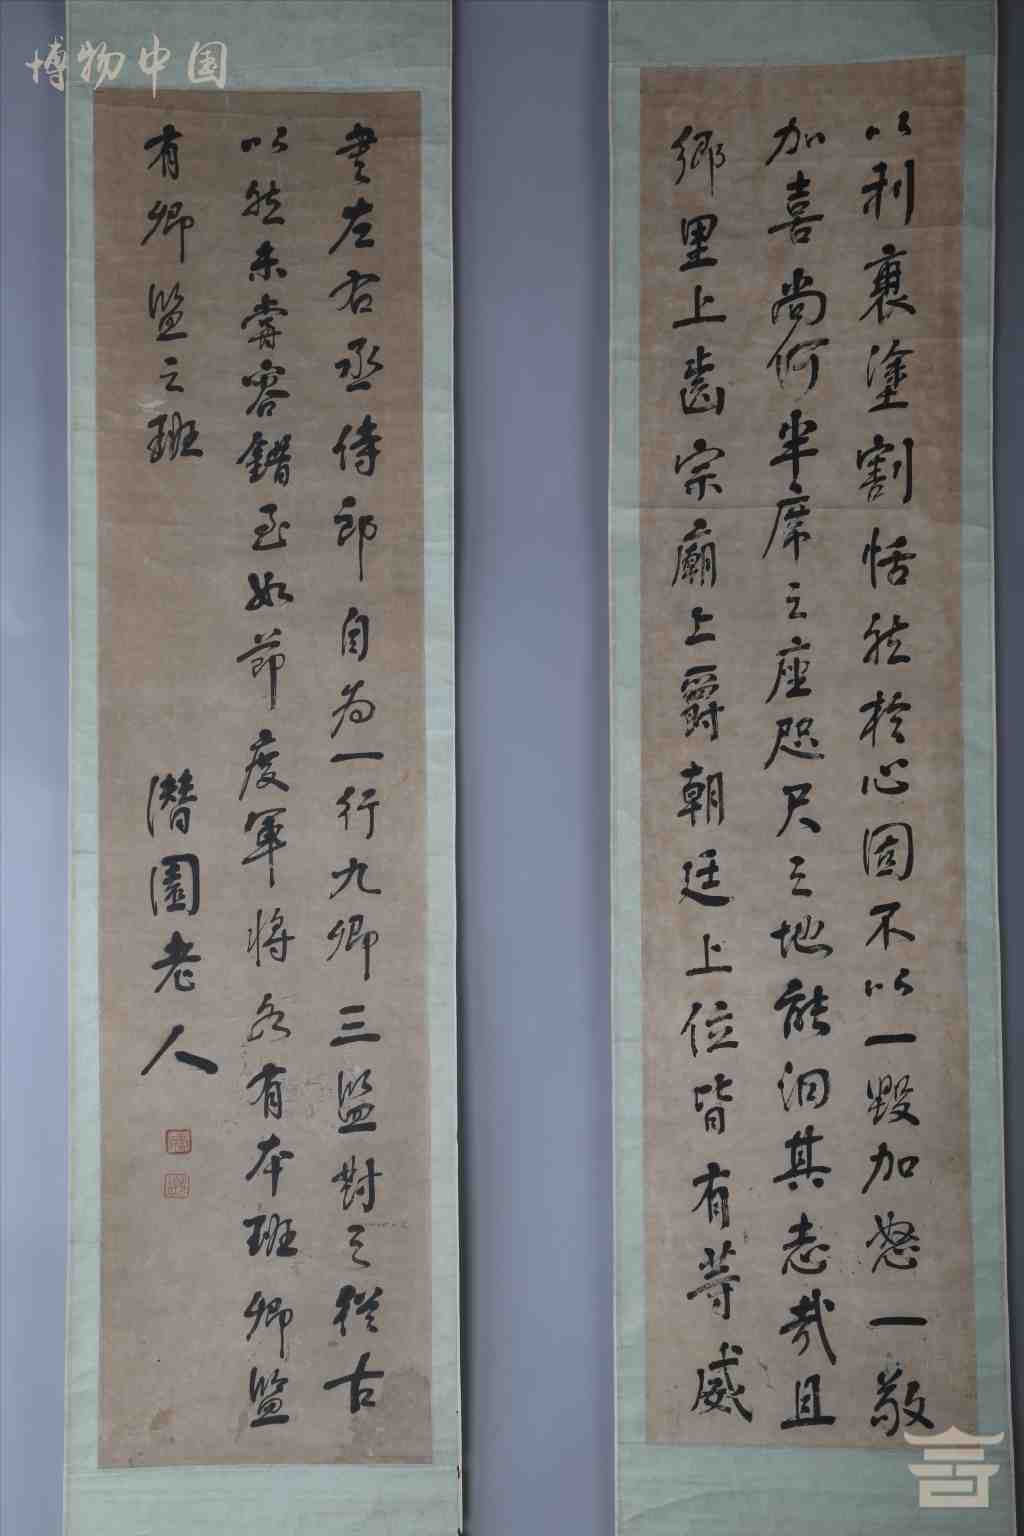 博物中国
以利裹塗割恬然於心固不以一毀加怒一敬
加喜尚何半席之座咫尺之地能汩其志哉且
鄉里上齒宗廟上爵朝廷上位皆有等威
書左右丞侍郎自為一行九卿三監對之從古
以然未嘗容錯至如節度軍將各有本班卿監
有卿監之班
潛園老人